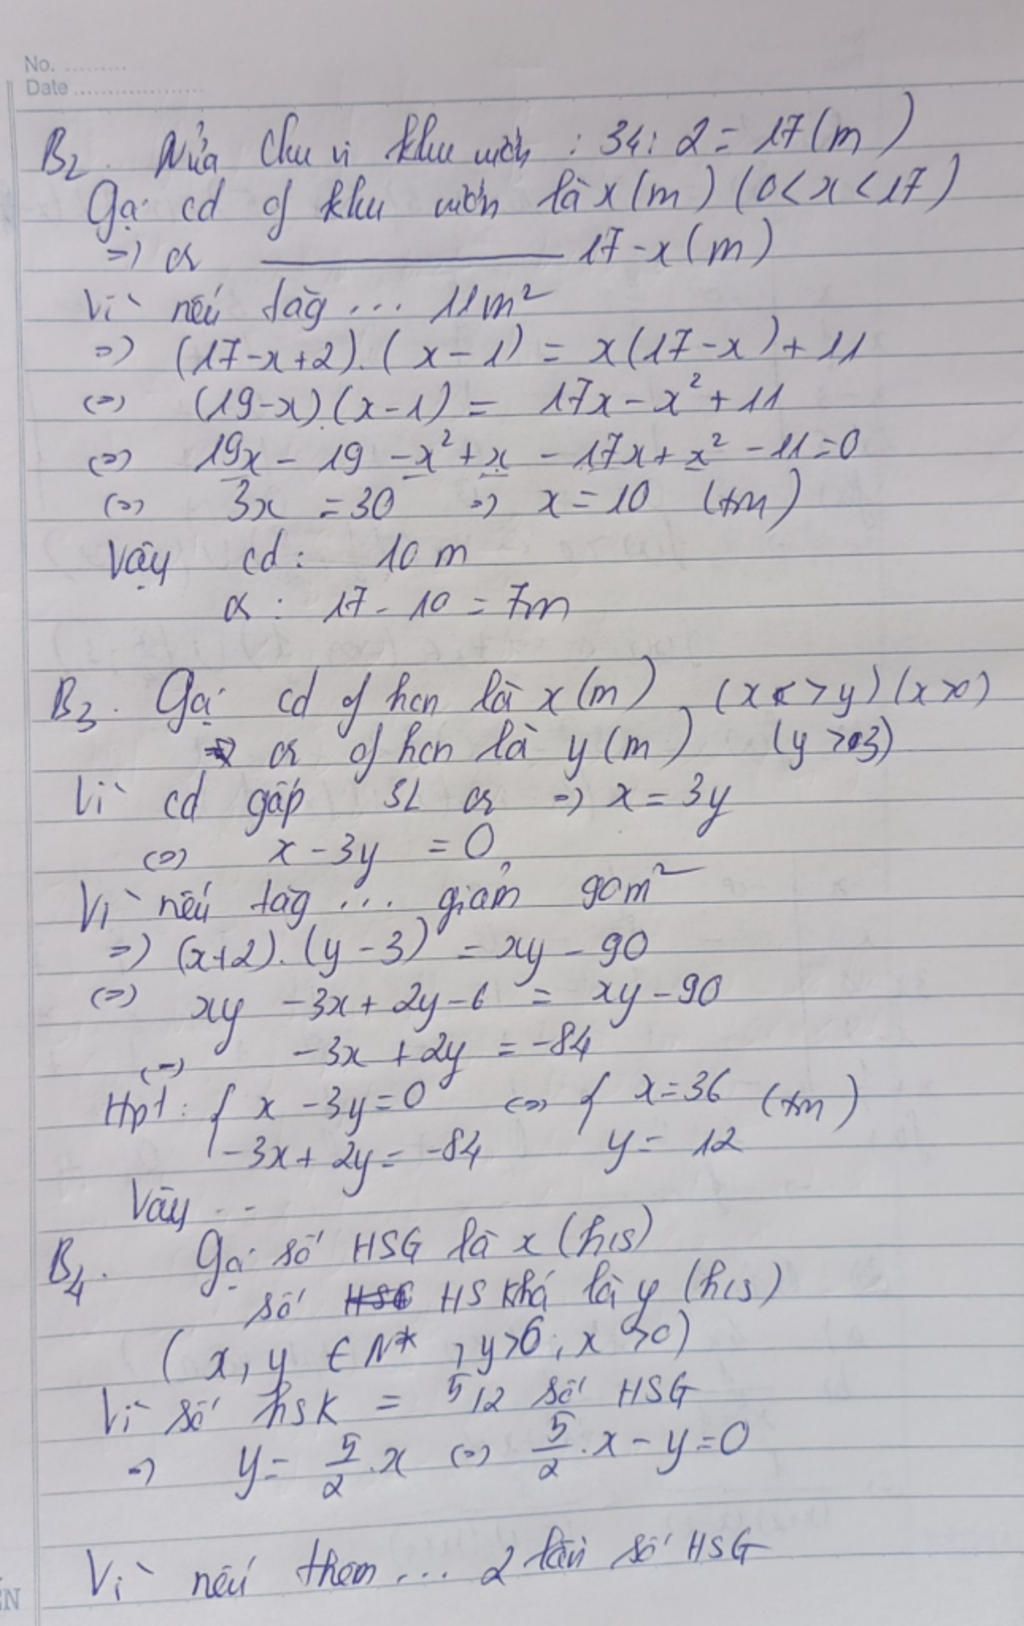 No. .........
Date ...................
B2. Nửa chu vi khu vườn : 34 : 2 = 17 (m)
Gọi cd of khu vườn là x (m) (0 < x < 17)
=> cr ———— 17 - x (m)
Vì nếu tăg ... 11m²
=> (17-x+2).(x-1) = x(17-x)+11
<=> (19-x).(x-1) = 17x - x² + 11
<=> 19x - 19 - x² + x - 17x + x² - 11 = 0
<=> 3x = 30 => x = 10 (tm)
Vậy cd : 10 m
cr : 17 - 10 = 7m
B3. Gọi cd of hcn là x (m) (x > y) (x > 0)
cr of hcn là y (m) (y > 3)
Vì cd gấp 3L cr => x = 3y
<=> x - 3y = 0
Vì nếu tăg ... giảm 90m²
=> (x+2).(y-3) = xy - 90
<=> xy - 3x + 2y - 6 = xy - 90
<=> -3x + 2y = -84
Hpt : { x - 3y = 0 <=> { x = 36 (tm)
-3x + 2y = -84 y = 12
Vậy ...
B4. Gọi số HSG là x (h/s)
số HS khá là y (h/s)
( x, y ∈ N* , y > 6 , x > 0)
Vì số hsk = 5/2 số HSG
=> y = 5/2 . x <=> 5/2 . x - y = 0
Vì nếu thêm ... 2 lần số HSG